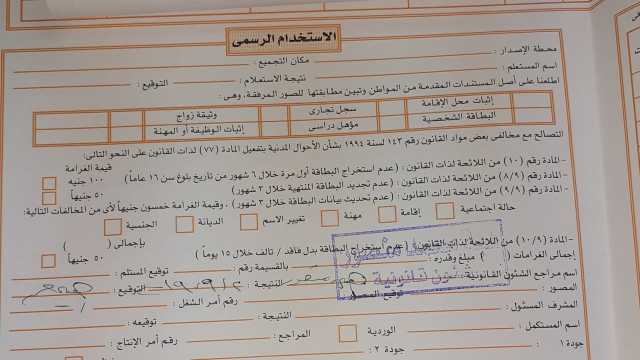 الاستخدام الرسمى
محطة الإصدار :
مكان التجميع :
اسم المستعلم :
نتيجة الاستعلام :
التوقيع :
اطلعنا على أصل المستندات المقدمة من المواطن وتبين مطابقتها للصور المرفقة، وهى :
إثبات محل الإقامة
سجل تجارى
وثيقة زواج
البطاقة الشخصية
مؤهل دراسى
إثبات الوظيفة أو المهنة
التصالح مع مخالفى بعض مواد القانون رقم ١٤٣ لسنة ١٩٩٤ بشأن الأحوال المدنية بتفعيل المادة (٧٧) لذات القانون على النحو التالى:
قيمة الغرامة
-المادة رقم (١٠) من اللائحة لذات القانون : (عدم استخراج البطاقة أول مرة خلال ٦ شهور من تاريخ بلوغ سن ١٦ عاماً)
١٠٠ جنيه
-المادة رقم (٨/٩) من اللائحة لذات القانون : (عدم تجديد البطاقة المنتهية خلال ٣ شهور)
٥٠ جنيهاً
-المادة رقم (٩/٩) من اللائحة لذات القانون : (عدم تحديث بيانات البطاقة خلال ٣ شهور) ، وقيمة الغرامة خمسون جنيهاً لأى من المخالفات التالية:
حالة اجتماعية
إقامة
مهنة
تغيير الاسم
الديانة
الجنسية
بإجمالى ( )
-المادة رقم (١٠/٩) من اللائحة لذات القانون : (عدم استخراج البطاقة بدل فاقد / تالف خلال ١٥ يوماً)
٥٠ جنيهاً
إجمالى الغرامات ( ) مبلغ وقدره :
بالقسيمة رقم :
توقيع المستلم :
اسم مراجع الشئون القانونية :
النتيجة :
التوقيع :
شئون قانونية
المصور :
توقيع المصور
رقم أمر الشغل :
المشرف المسئول :
النتيجة :
توقيعه :
اسم المستكمل :
الوردية
المراجع :
رقم أمر الإنتاج :
جودة ١ :
جودة ٢ :